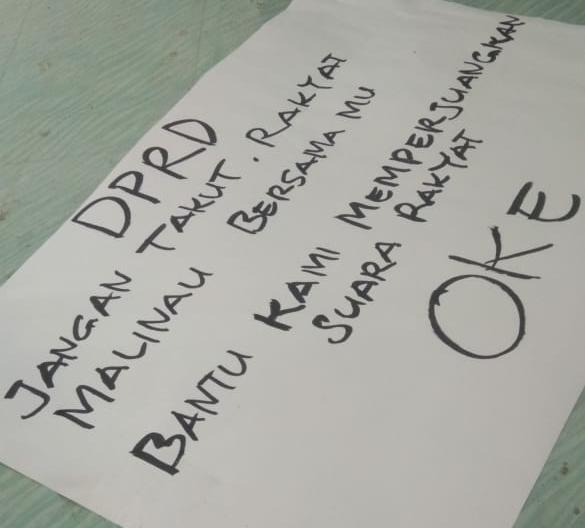 DPRD
JANGAN TAKUT. RAKYAT
MALINAU BERSAMA MU
BANTU KAMI MEMPERJUANGKAN
SUARA RAKYAT
OKE